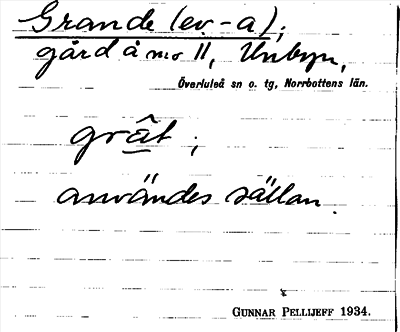 Grande (ev. -a);
gård å nr 11, Unbyn,
Överluleå sn o. tg, Norrbottens län.
grât ;
användes sällan.
GUNNAR PELLIJEFF 1934.